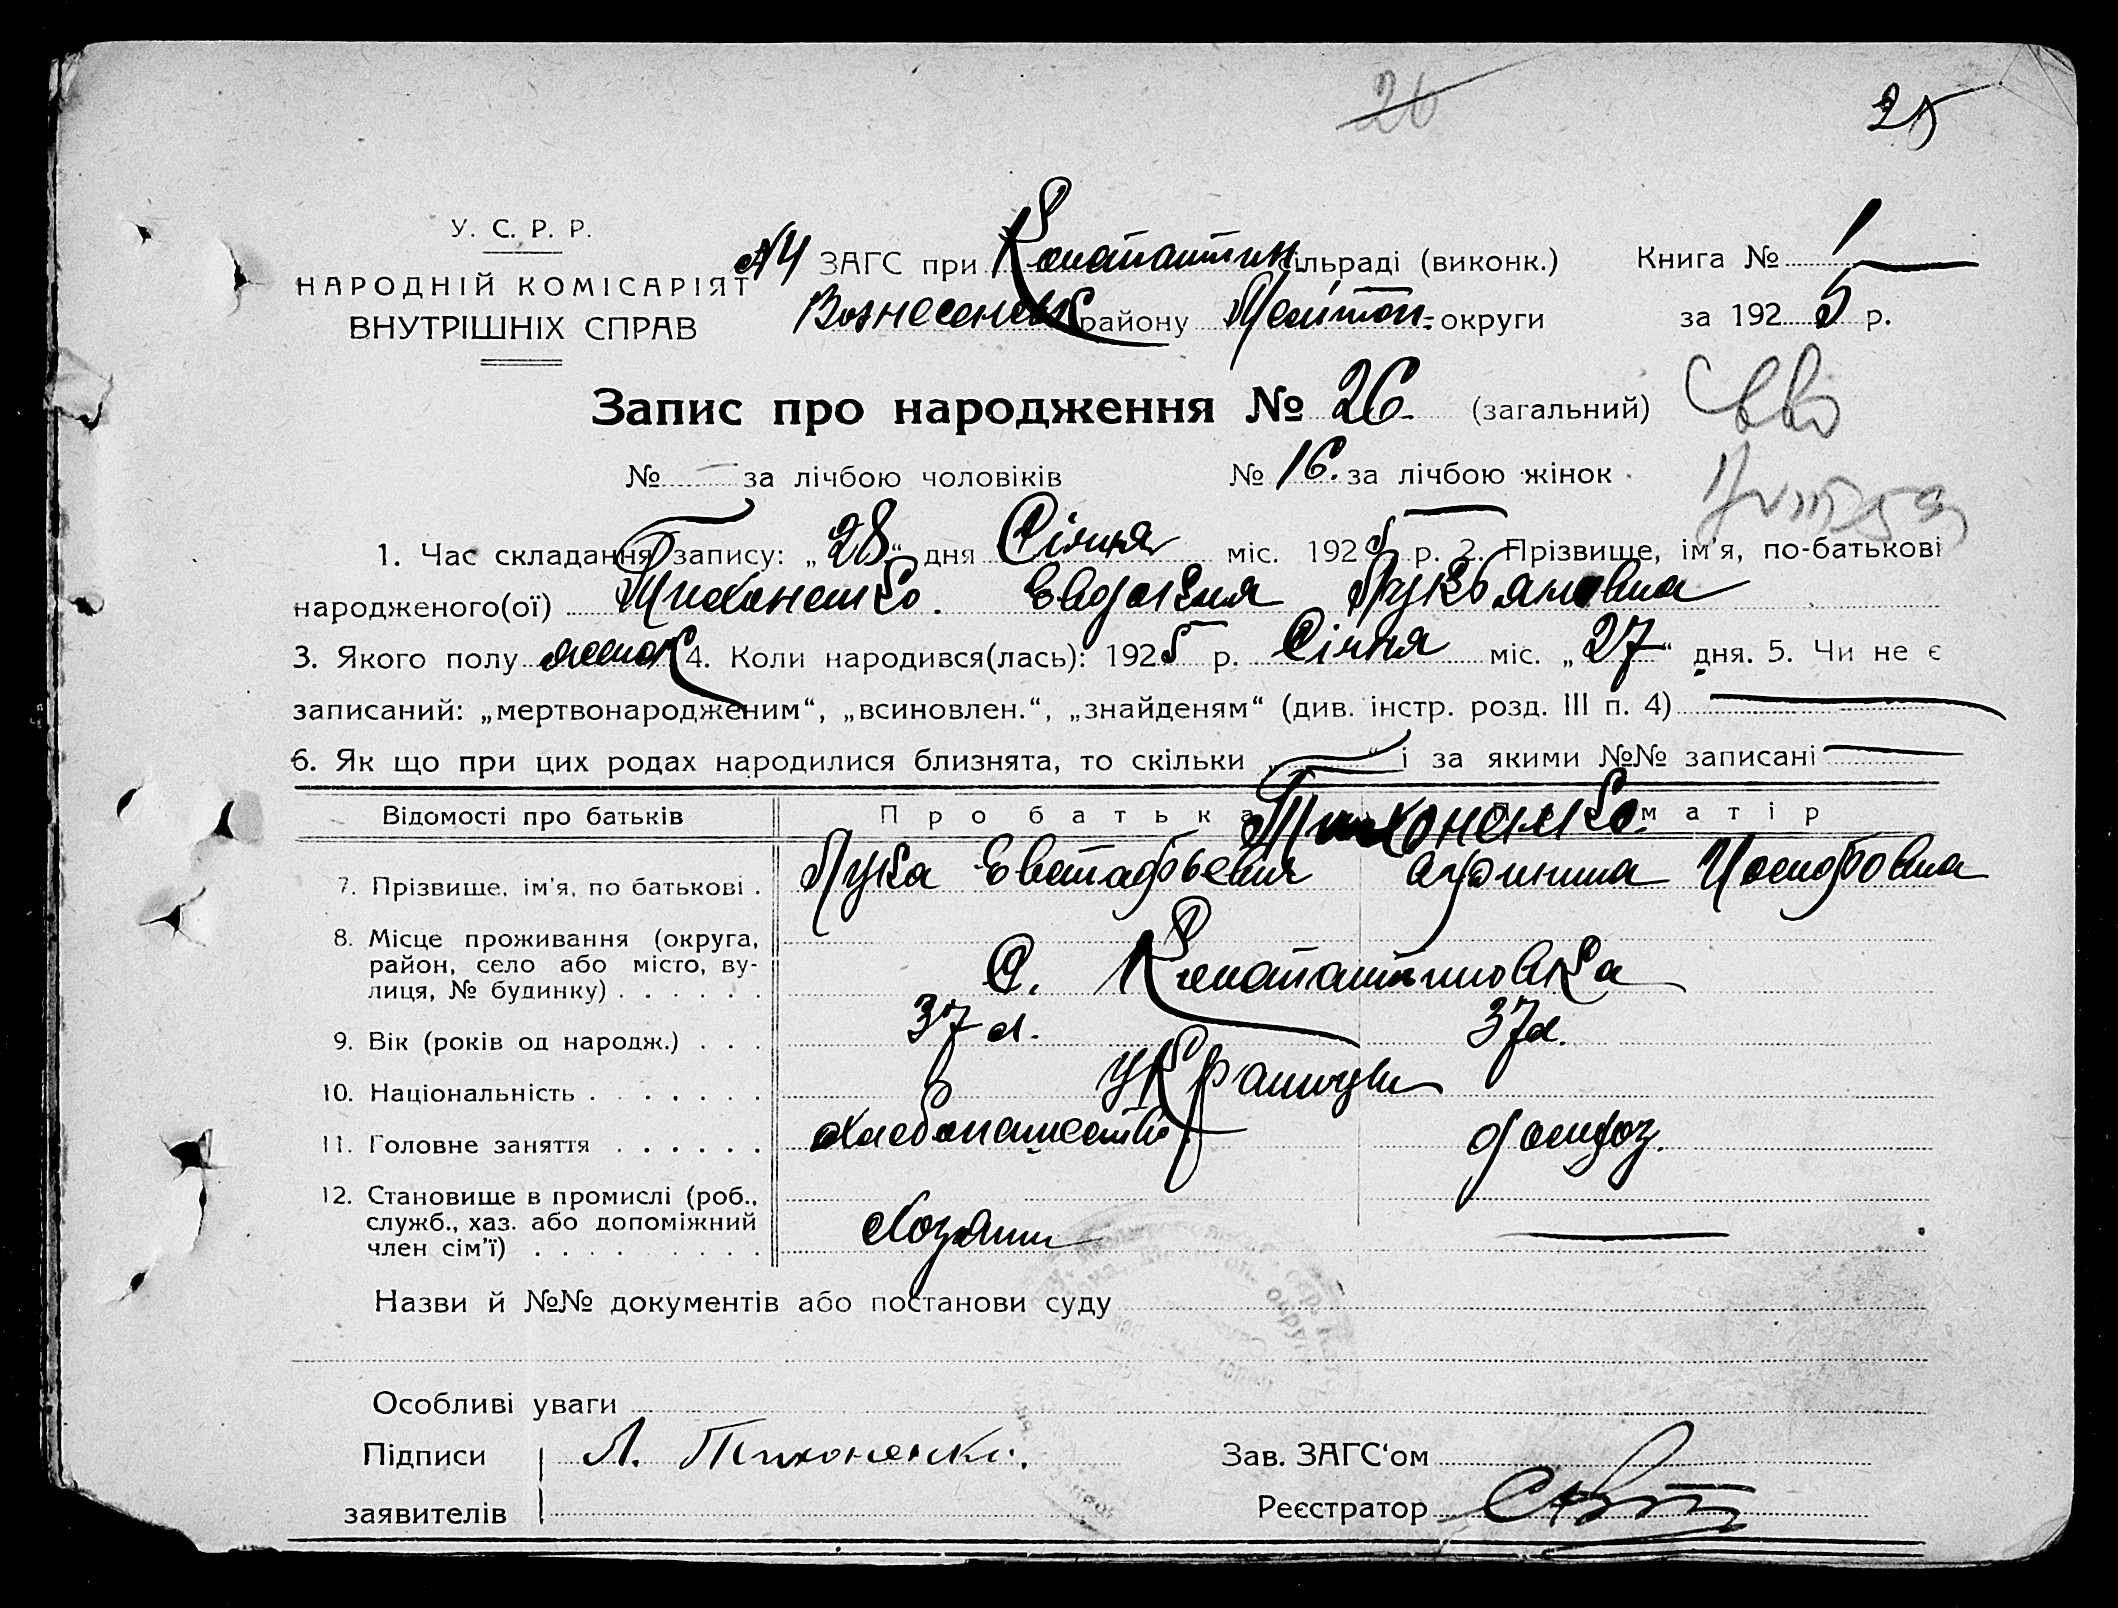 26
25
У. С. Р. Р.
НАРОДНІЙ КОМІСАРІЯТ
ВНУТРІШНІХ СПРАВ
ЗАГС при Константин. сільраді (виконк.)
Вознесенск району Меліт. округи
Книга № 1
за 1925 р.
Запис про народження № 26. (загальний)
№ — за лічбою чоловіків № 16. за лічбою жінок
1. Час складання запису: „28“ дня Січня міс. 1925 р. 2. Прізвище, ім'я, по-батькові
народженого(ої) Тихоненко. Евдокия Лукьяновна
3. Якого полу женск 4. Коли народився(лась): 1925 р. Січня міс. „27“ дня. 5. Чи не є
записаний: „мертвонародженим“, „всиновлен.“, „знайденям“ (див. інстр. розд. III п. 4) —
6. Як що при цих родах народилися близнята, то скільки „—“ і за якими №№ записані —
Відомості про батьків Про батька Про матір
Тихоненко
7. Прізвище, ім'я, по батькові . Лука Евстафьевич Иосифовна
8. Місце проживання (округа,
район, село або місто, ву-
лиця, № будинку) . . . . . . С. Константиновка
9. Вік (років од народж.) . . . 37 л. 37 л.
10. Національність . . . . . . . Украинцы
11. Головне заняття . . . . . . хлебопашество домхоз.
12. Становище в промислі (роб.,
служб., хаз. або допоміжний
член сім'ї) . . . . . . . . . Хозяин —
Назви й №№ документів або постанови суду
Особливі уваги
Підписи Л. Тихоненко. Зав. ЗАГС‘ом
заявителів Реєстратор